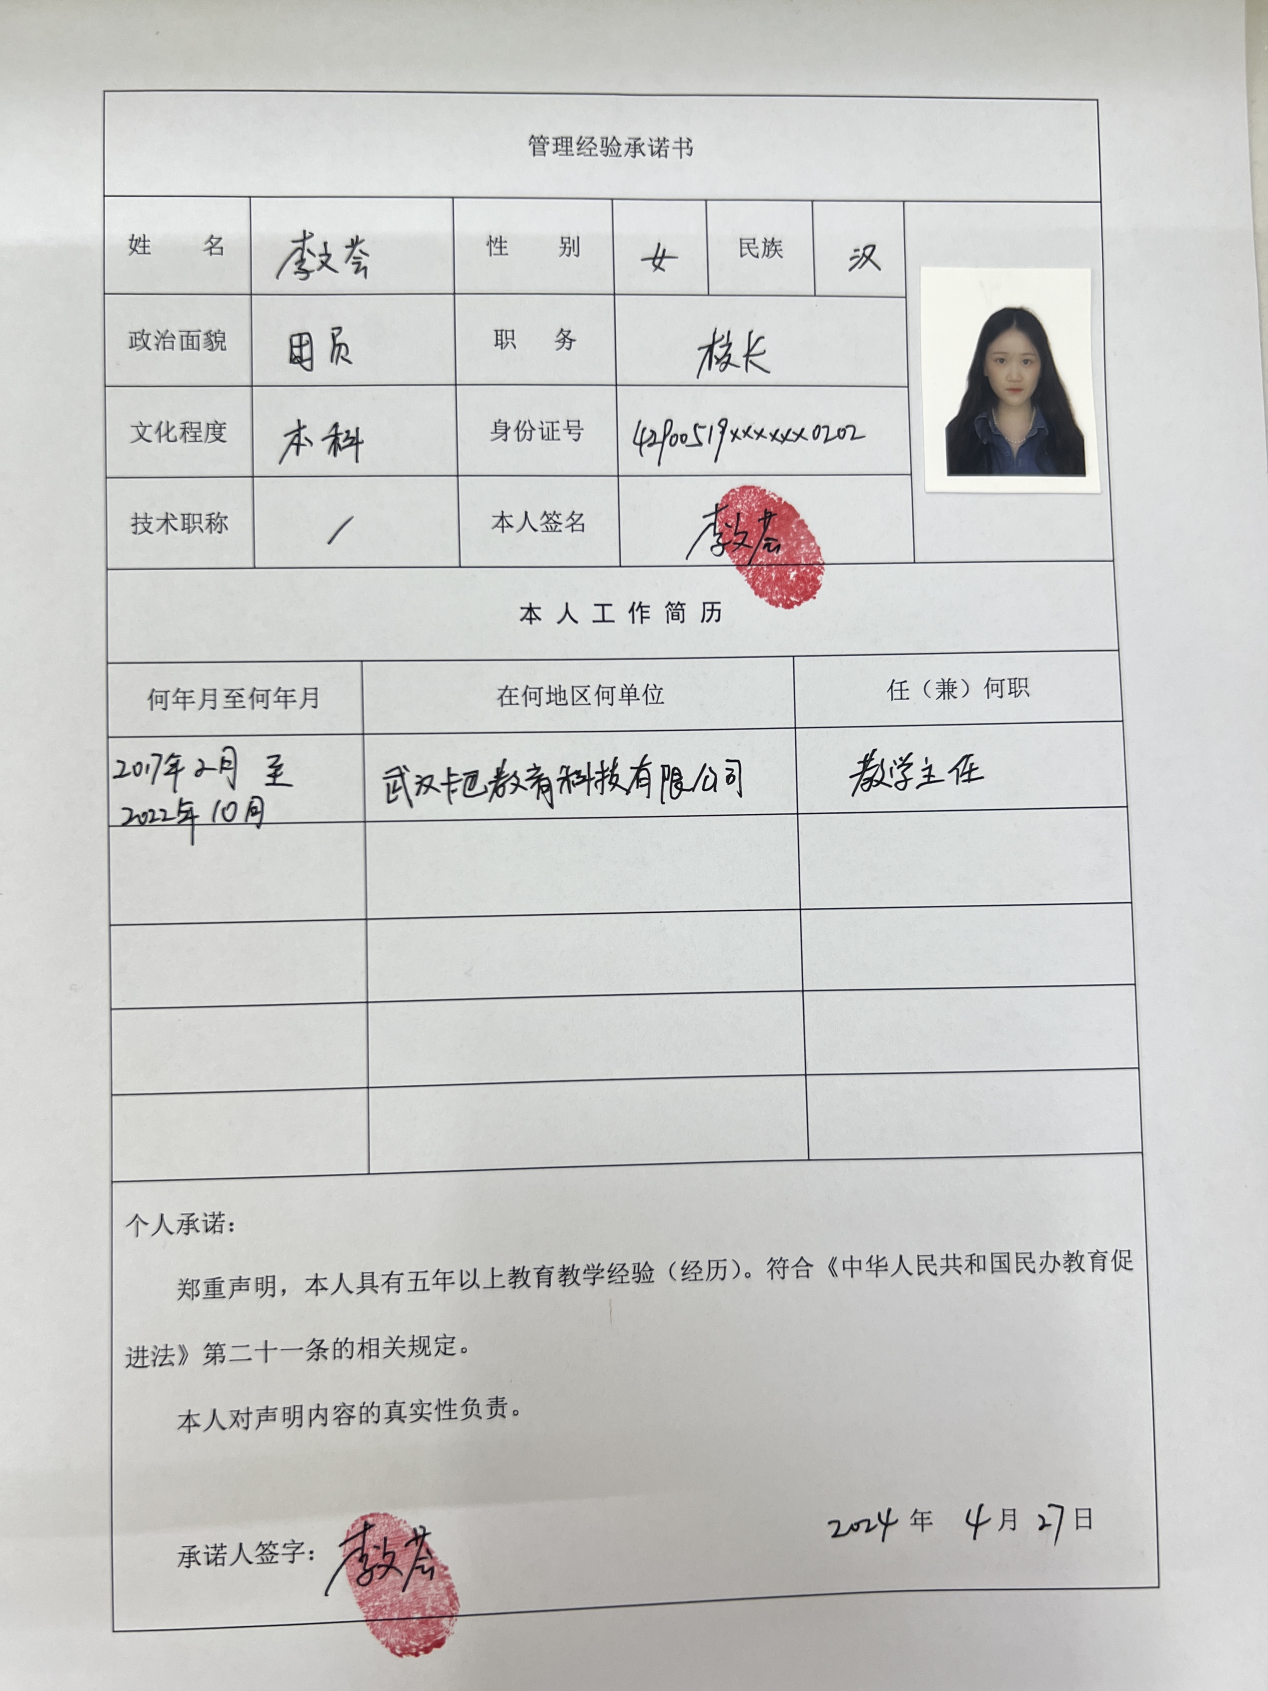 管理经验承诺书
姓 名 李文荟 性 别 女 民族 汉
政治面貌 团员 职 务 校长
文化程度 本科 身份证号 42900519xxxxxx0202
技术职称 / 本人签名 李文荟
本人工作简历
何年月至何年月 在何地区何单位 任（兼）何职
2017年2月 至 武汉卡巴教育科技有限公司 教学主任
2022年10月
个人承诺：
郑重声明，本人具有五年以上教育教学经验（经历）。符合《中华人民共和国民办教育促
进法》第二十一条的相关规定。
本人对声明内容的真实性负责。
承诺人签字：李文荟 2024年 4月27日